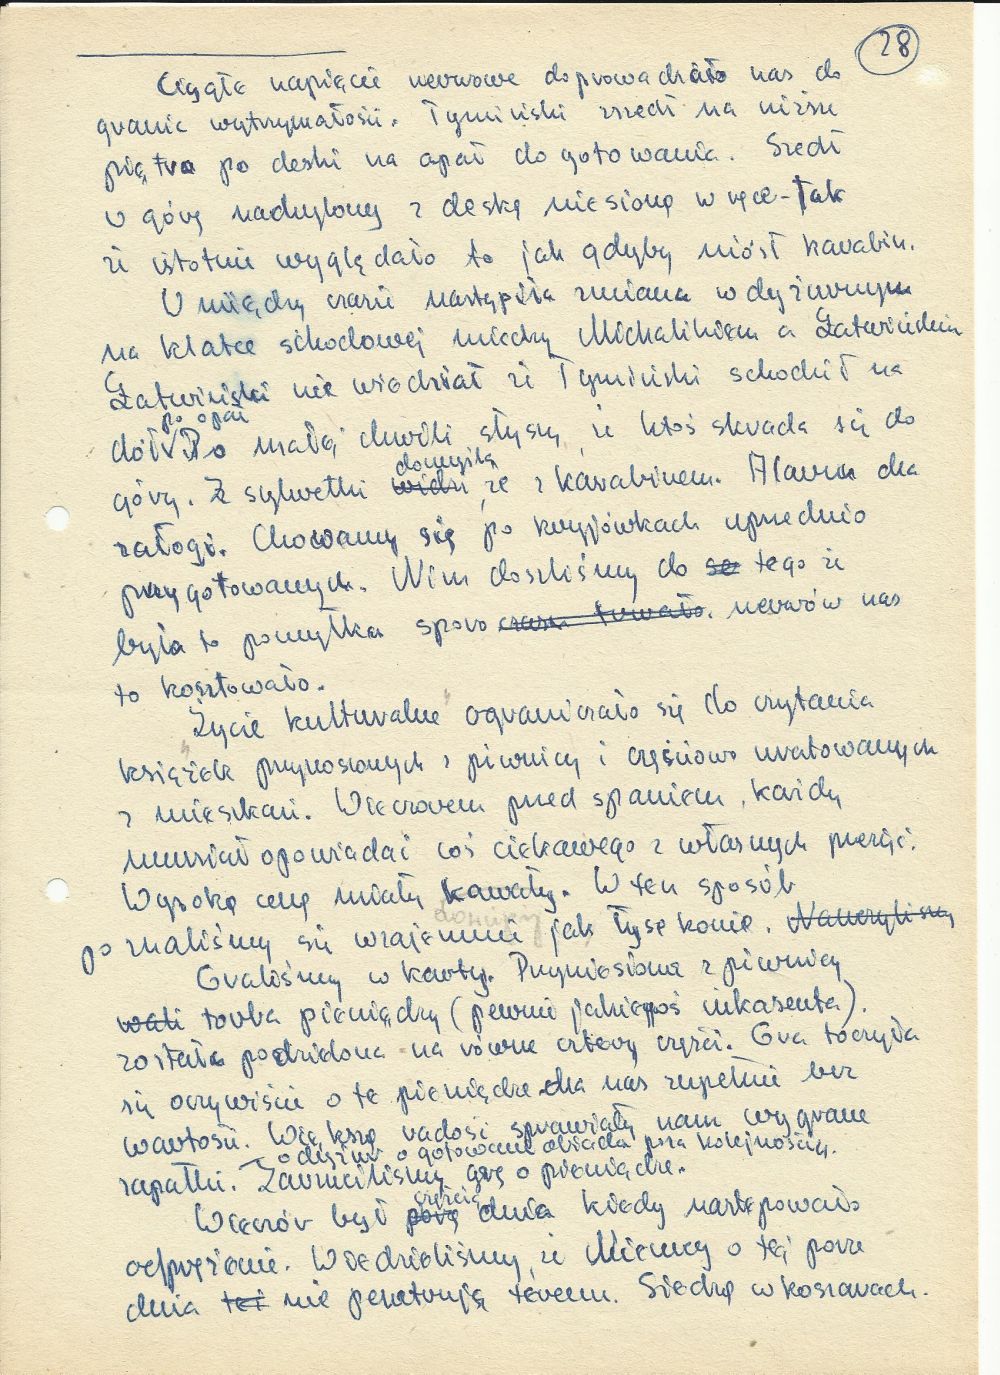 28
Ciągłe napięcie nerwowe doprowadzało nas do
granic wytrzymałości. Tymiński zszedł na niższe
piętra po deski na opał do gotowania. Szedł
w górę nachylony z deską niesioną w ręce - tak
że istotnie wyglądało to jak gdyby niósł karabin.
W między czasie nastąpiła zmiana w dyżurnym
na klatce schodowej między Michalikiem a Łatwińskim
Łatwiński nie wiedział że Tymiński schodził na
po opał
dół. Po małej chwili słyszy, że ktoś skrada się do
domyśla
góry. Z sylwetki widzi, że z karabinem. Alarm dla
załogi. Chowamy się po kryjówkach uprzednio
przygotowanych. Nim doszliśmy do se tego że
była to pomyłka sporo czasu trwało. nerwów nas
to kosztowało.
"Życie kulturalne" ograniczało się do czytania
książek przynoszonych z piwnicy i częściowo uratowanych
z mieszkań. Wieczorem przed spaniem, każdy
musiał opowiadać coś ciekawego z własnych przeżyć.
Wysoką cenę miały kawały. W ten sposób
poznaliśmy się wzajemnie jak łyse konie. Nauczyliśmy
Graliśmy w karty. Przyniesiona z piwnicy
wali torba pieniędzy (pewnie jakiegoś inkasenta).
została podzielona na równe cztery części. Gra toczyła
się oczywiście o te pieniądze dla nas zupełnie bez
wartości. Większą radość sprawiały nam wygrane
o dyżur o gotowanie obiadu poza kolejnością.
zapałki. Zarzuciliśmy grę o pieniądze.
częścią
Wieczór był porą dnia kiedy następowało
odprężenie. Wiedzieliśmy, że Niemcy o tej porze
dnia też nie penetrują terenu. Siedzą w koszarach.